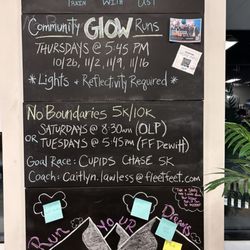 TRAIN WITH US!
Community GLOW Runs
THURSDAYS @ 5:45 PM
10/26, 11/2, 11/9, 11/16
*Lights & Reflectivity Required*
No Boundaries 5K/10K
SATURDAYS @ 8:30am (OLP)
OR
TUESDAYS @ 5:45PM (FF Dewitt)
Goal Race: CUPIDS CHASE 5K
Coach: Caitlyn.lawless@fleetfeet.com
Run YOUR Dreams